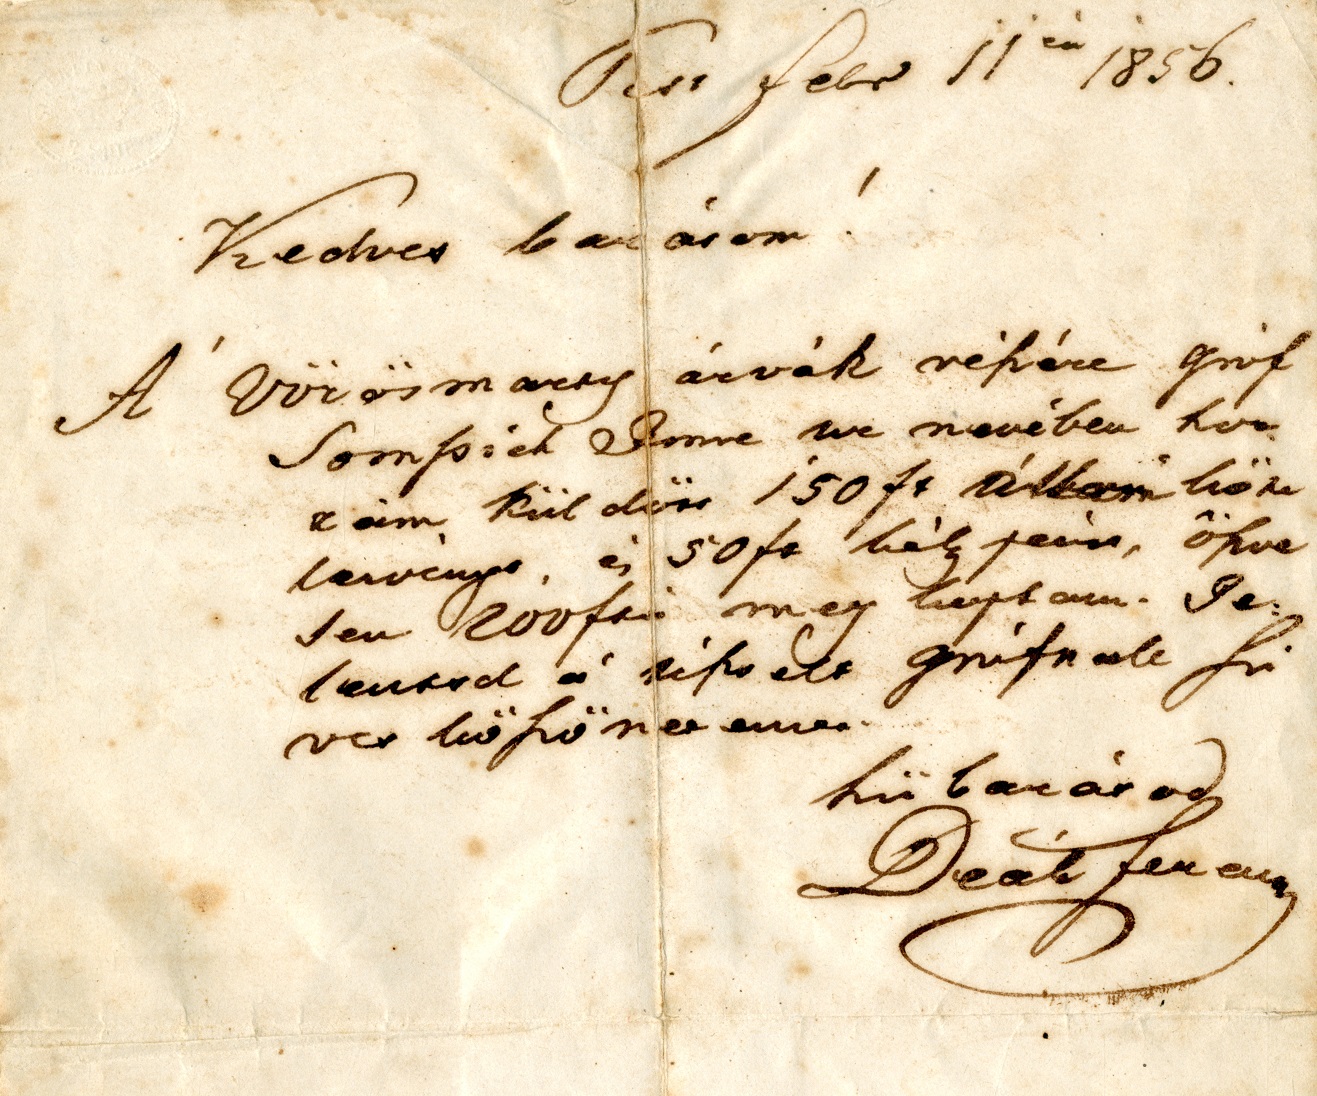 Pest febr 11én 1856.
Kedves barátom!
A' Vörösmarty árvák részére gróf
Somssich Imre úr nevében hoz-
zám küldött 150 ft köte
lezvényt, és 50 ft kész pénzt, össze
sen 200 ftot meg kaptam. Je-
lentsd a' tisztelt grófnak szi
ves köszönetemet.
hű barátod
Deák Ferencz